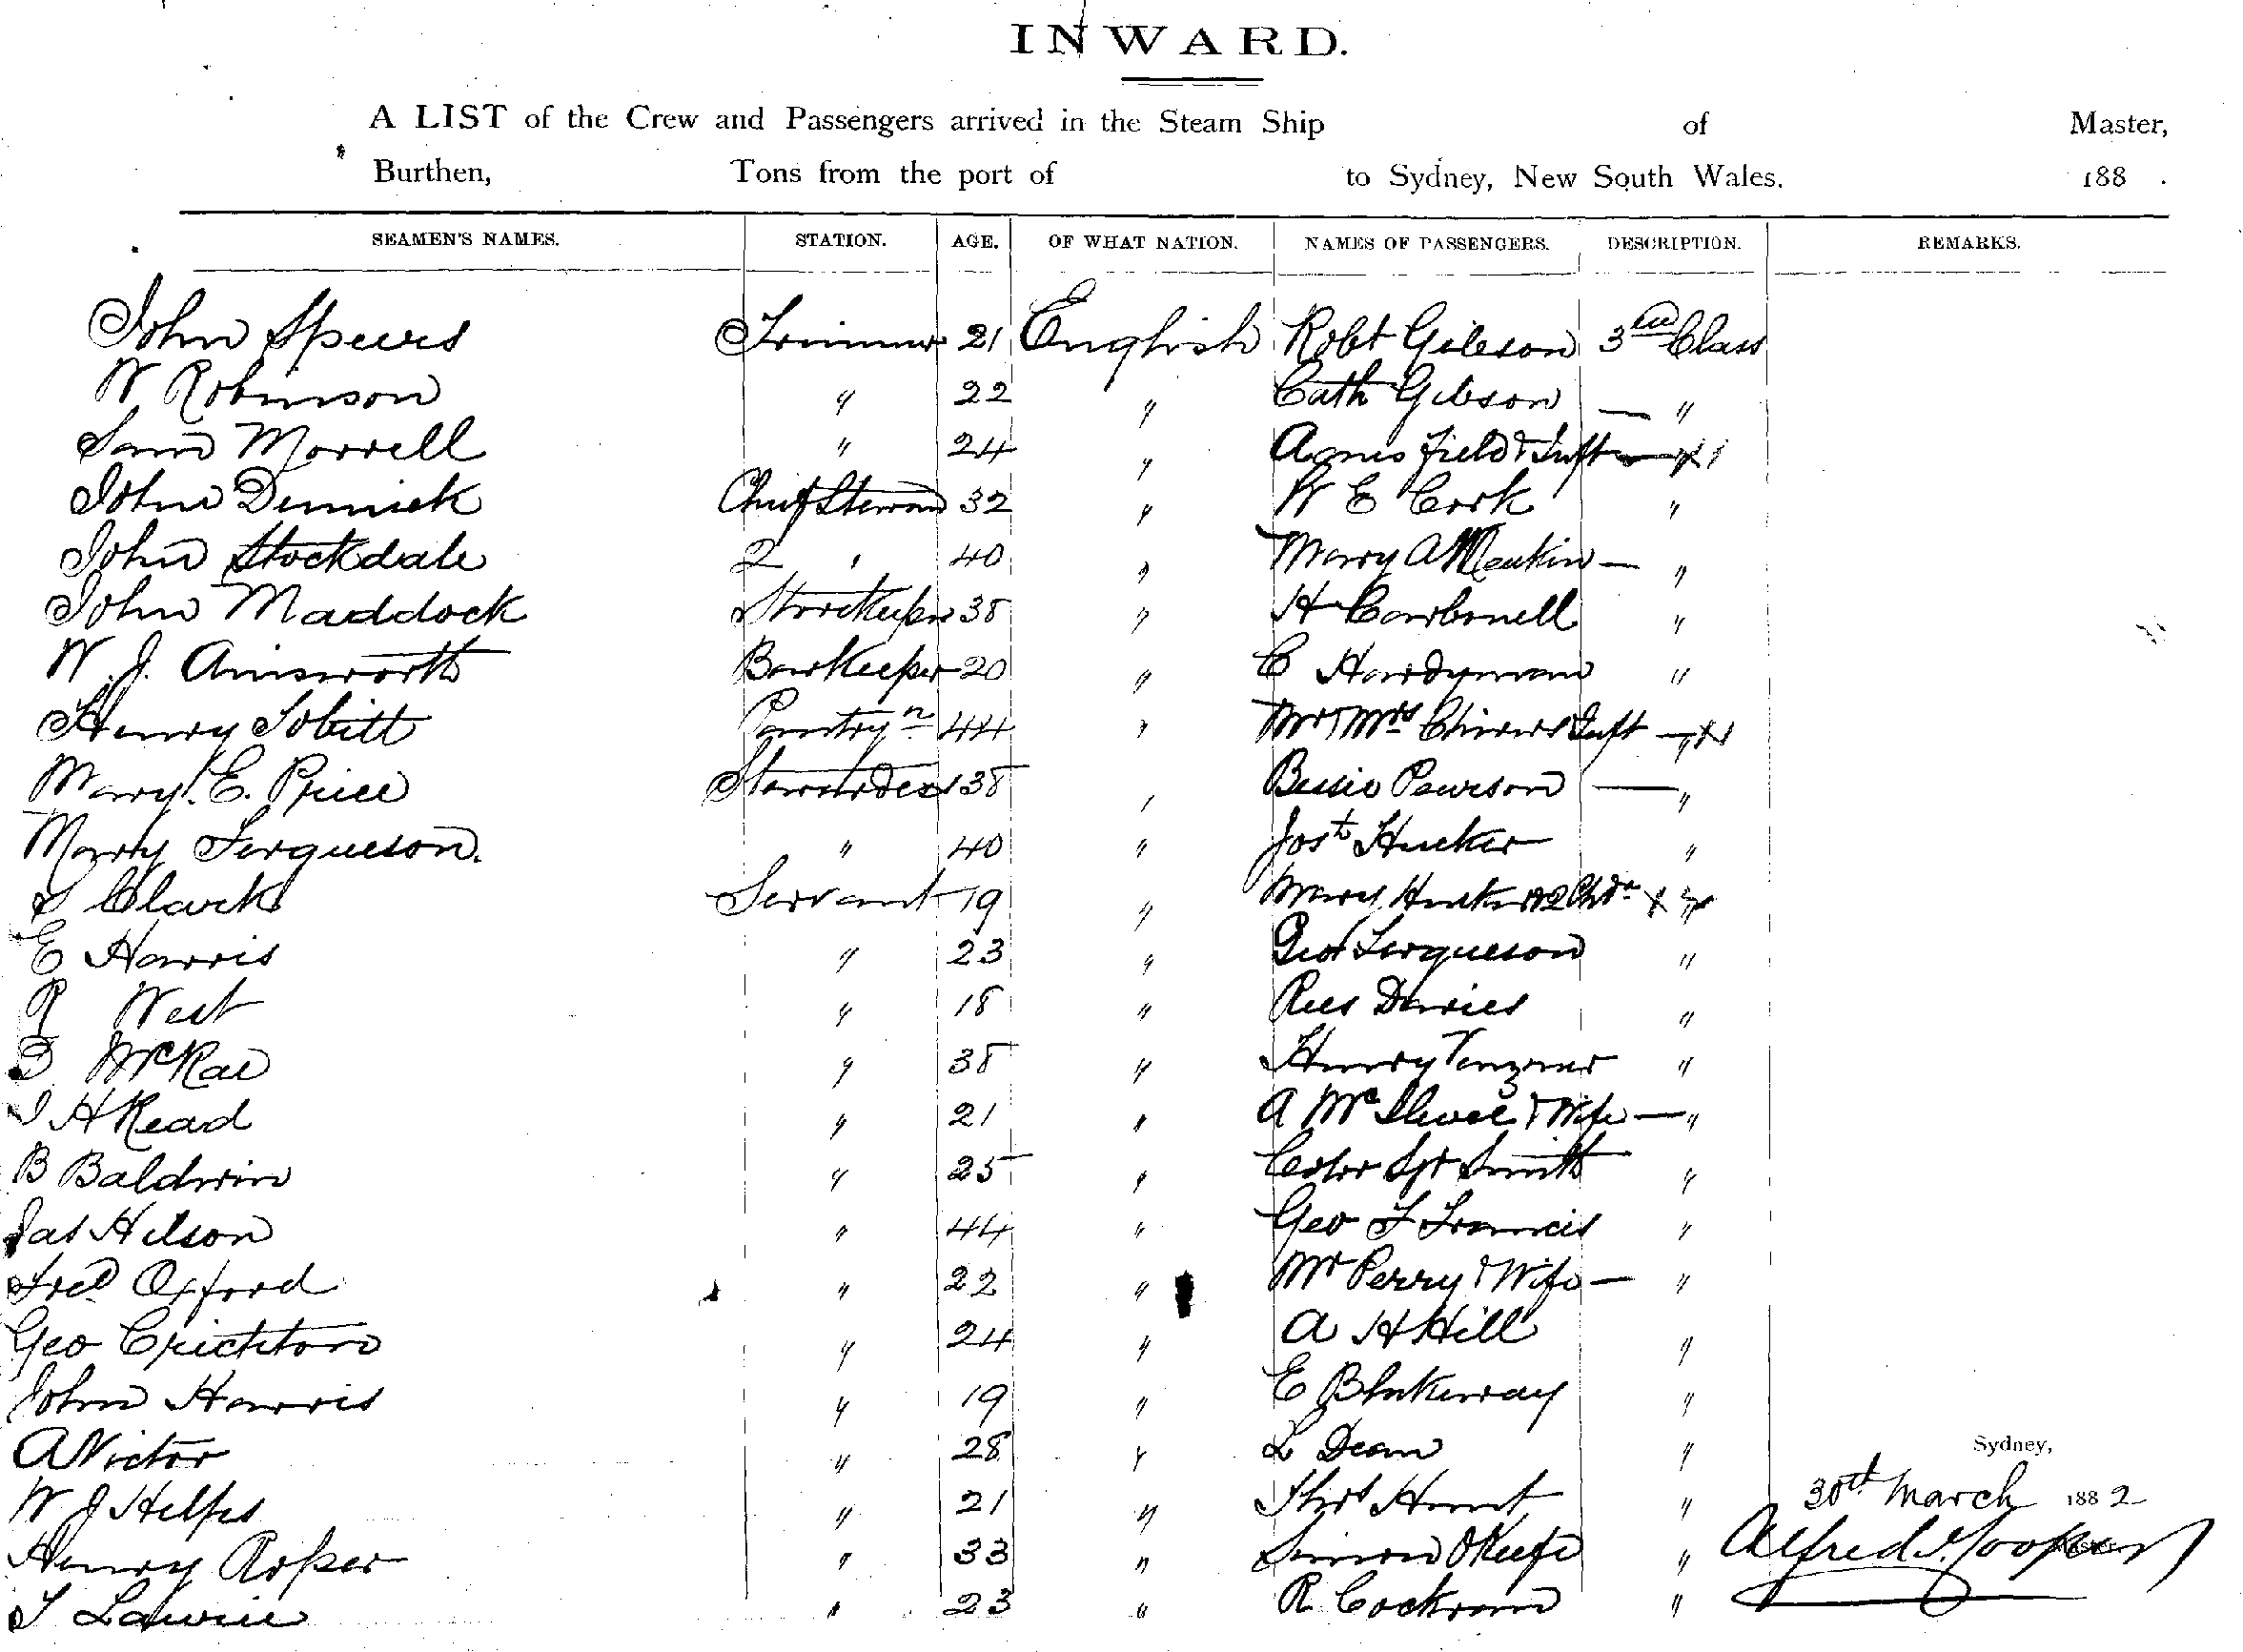 INWARD.
A LIST of the Crew and Passengers arrived in the Steam Ship of Master,
Burthen, Tons from the port of to Sydney, New South Wales. 188 .
SEAMEN'S NAMES. STATION. AGE. OF WHAT NATION. NAMES OF PASSENGERS. DESCRIPTION. REMARKS.
John Spears Trimmer 21 English Robt Gibson 3rd Class
W Robinson " 22 " Cath Gibson — "
Saml Morrell " 24 " Agnes Field & Inft — "
John Dennick Chief Steward 32 " W E Cork "
John Stockdale 2 " 40 " Mary A Meakin — "
John Maddock Storekeeper 38 " H Carbonell "
W. J. Ainsworth Barkeeper 20 " C Hardyman "
Henry Sobitt Pantryn 44 " Mr & Mrs Chivers & Inft — "
Mary. E. Price Stewardess 38 " Bessie Pearson — "
Mary Fergueson. " 40 " Josh Hucker "
S Clark Servant 19 " Mary Hucker & 2 Chdn "
E Harris " 23 " Geo Fergueson "
R West " 18 " Rees Davies "
D McRae " 38 " Henry "
J H Read " 21 " A & Wife — "
B Baldwin " 25 " Color Sgt Smith "
Jas Hilson " 44 " Geo F Francis "
Fred Oxford " 22 " Mr Perry & Wife — "
Geo Crichton " 24 " A H Hill "
John Harris " 19 " E Blakeway "
A Victor " 28 " L Dean "
Sydney,
W J Helps " 21 " Thos Hunt "
30th March 1882
Henry Roper " 33 " Simon OKeefe "
Alfred J. Cooper
Master.
T Lawrie " 23 " R Cockram "